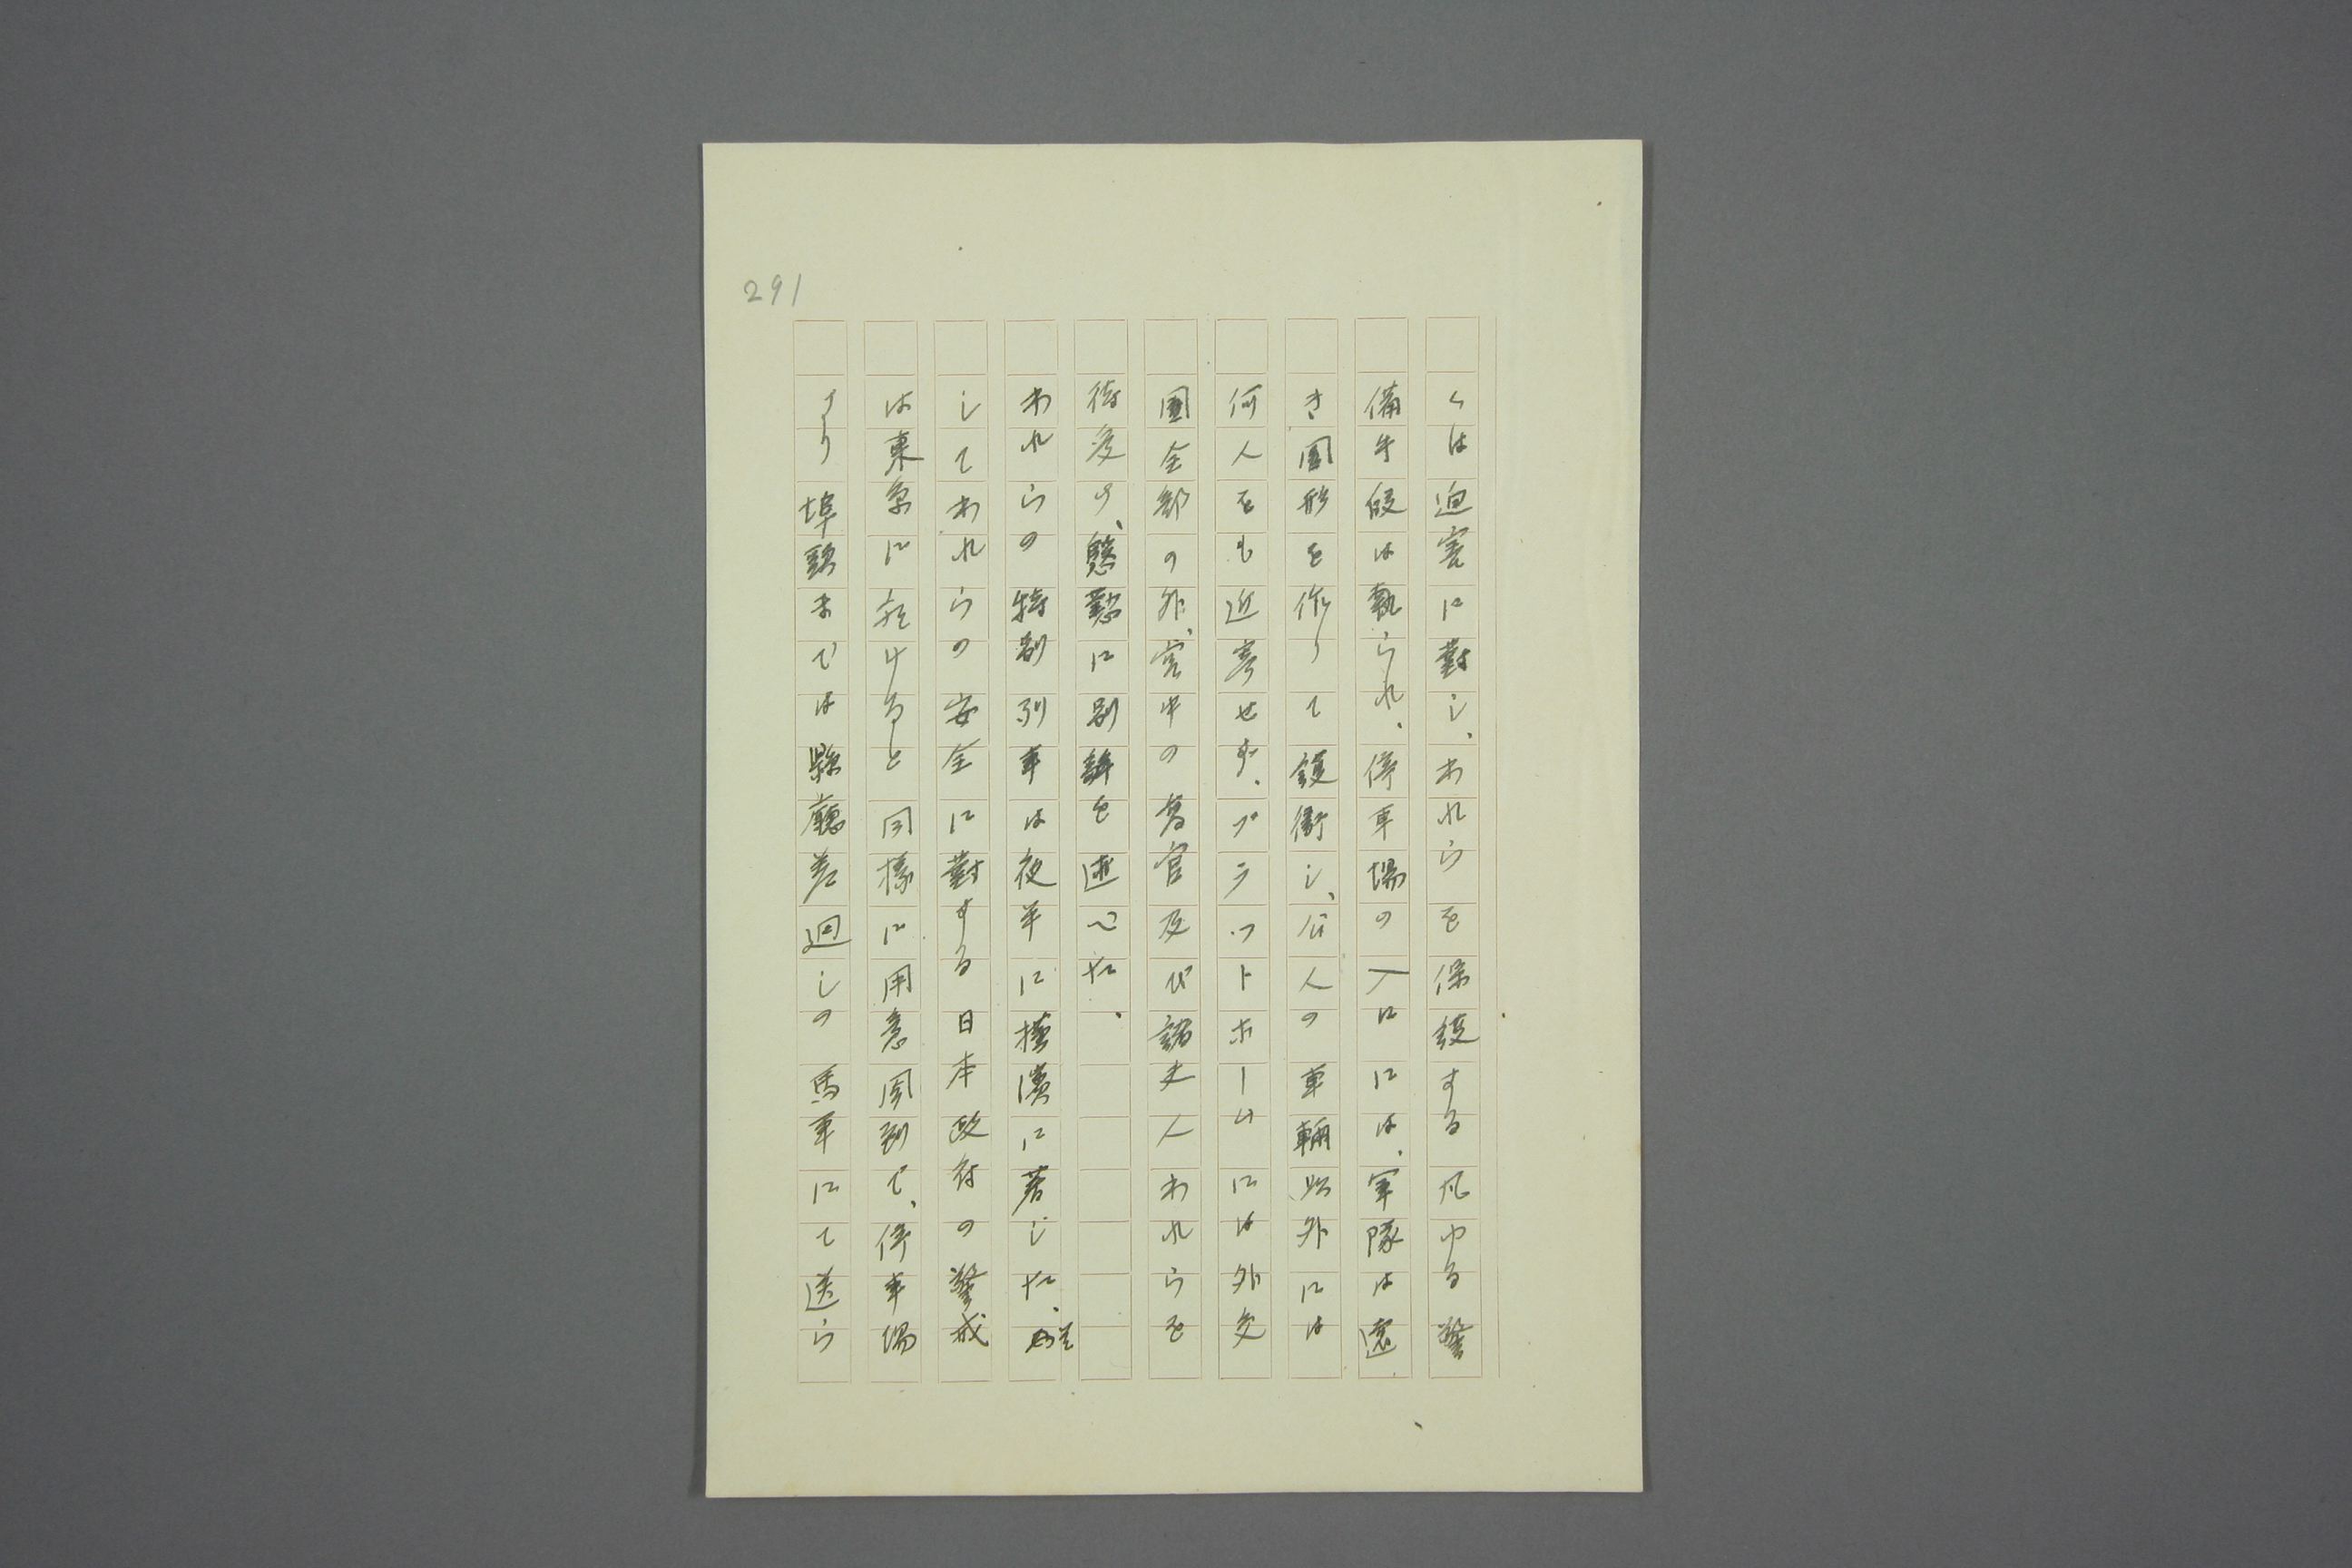 291
くは迫害に對し、われらを保護する凡ゆる警
備手段は執られ、停車場の入口には、軍隊は遠
き圓形を作りて護衛し、公人の車輛以外には
何人をも近寄せず、プラットホームには外交
團全部の外、宮中の高官及び諸夫人われらを
待受け、慇懃に別辭を述べた。
われらの特別列車は夜半に横濱に着した。
してわれらの安全に對する日本政府の警戒
は東京に於けると同様に用意周到で、停車場
より埠頭までは縣廳差廻しの馬車にて送ら